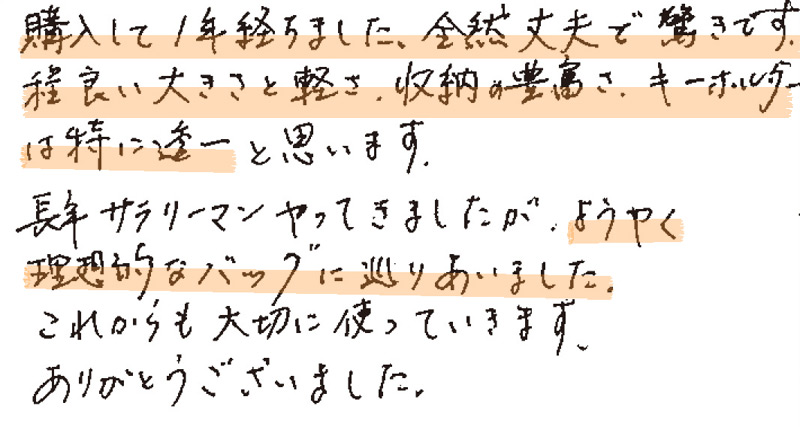 購入して1年経ちました、全然丈夫で驚きです。
程良い大きさと軽さ、収納の豊富さ、キーホルダー
は特に逸一と思います。
長年サラリーマンやってきましたが、ようやく
理想的なバッグに巡りあいました。
これからも大切に使っていきます。
ありがとうございました。